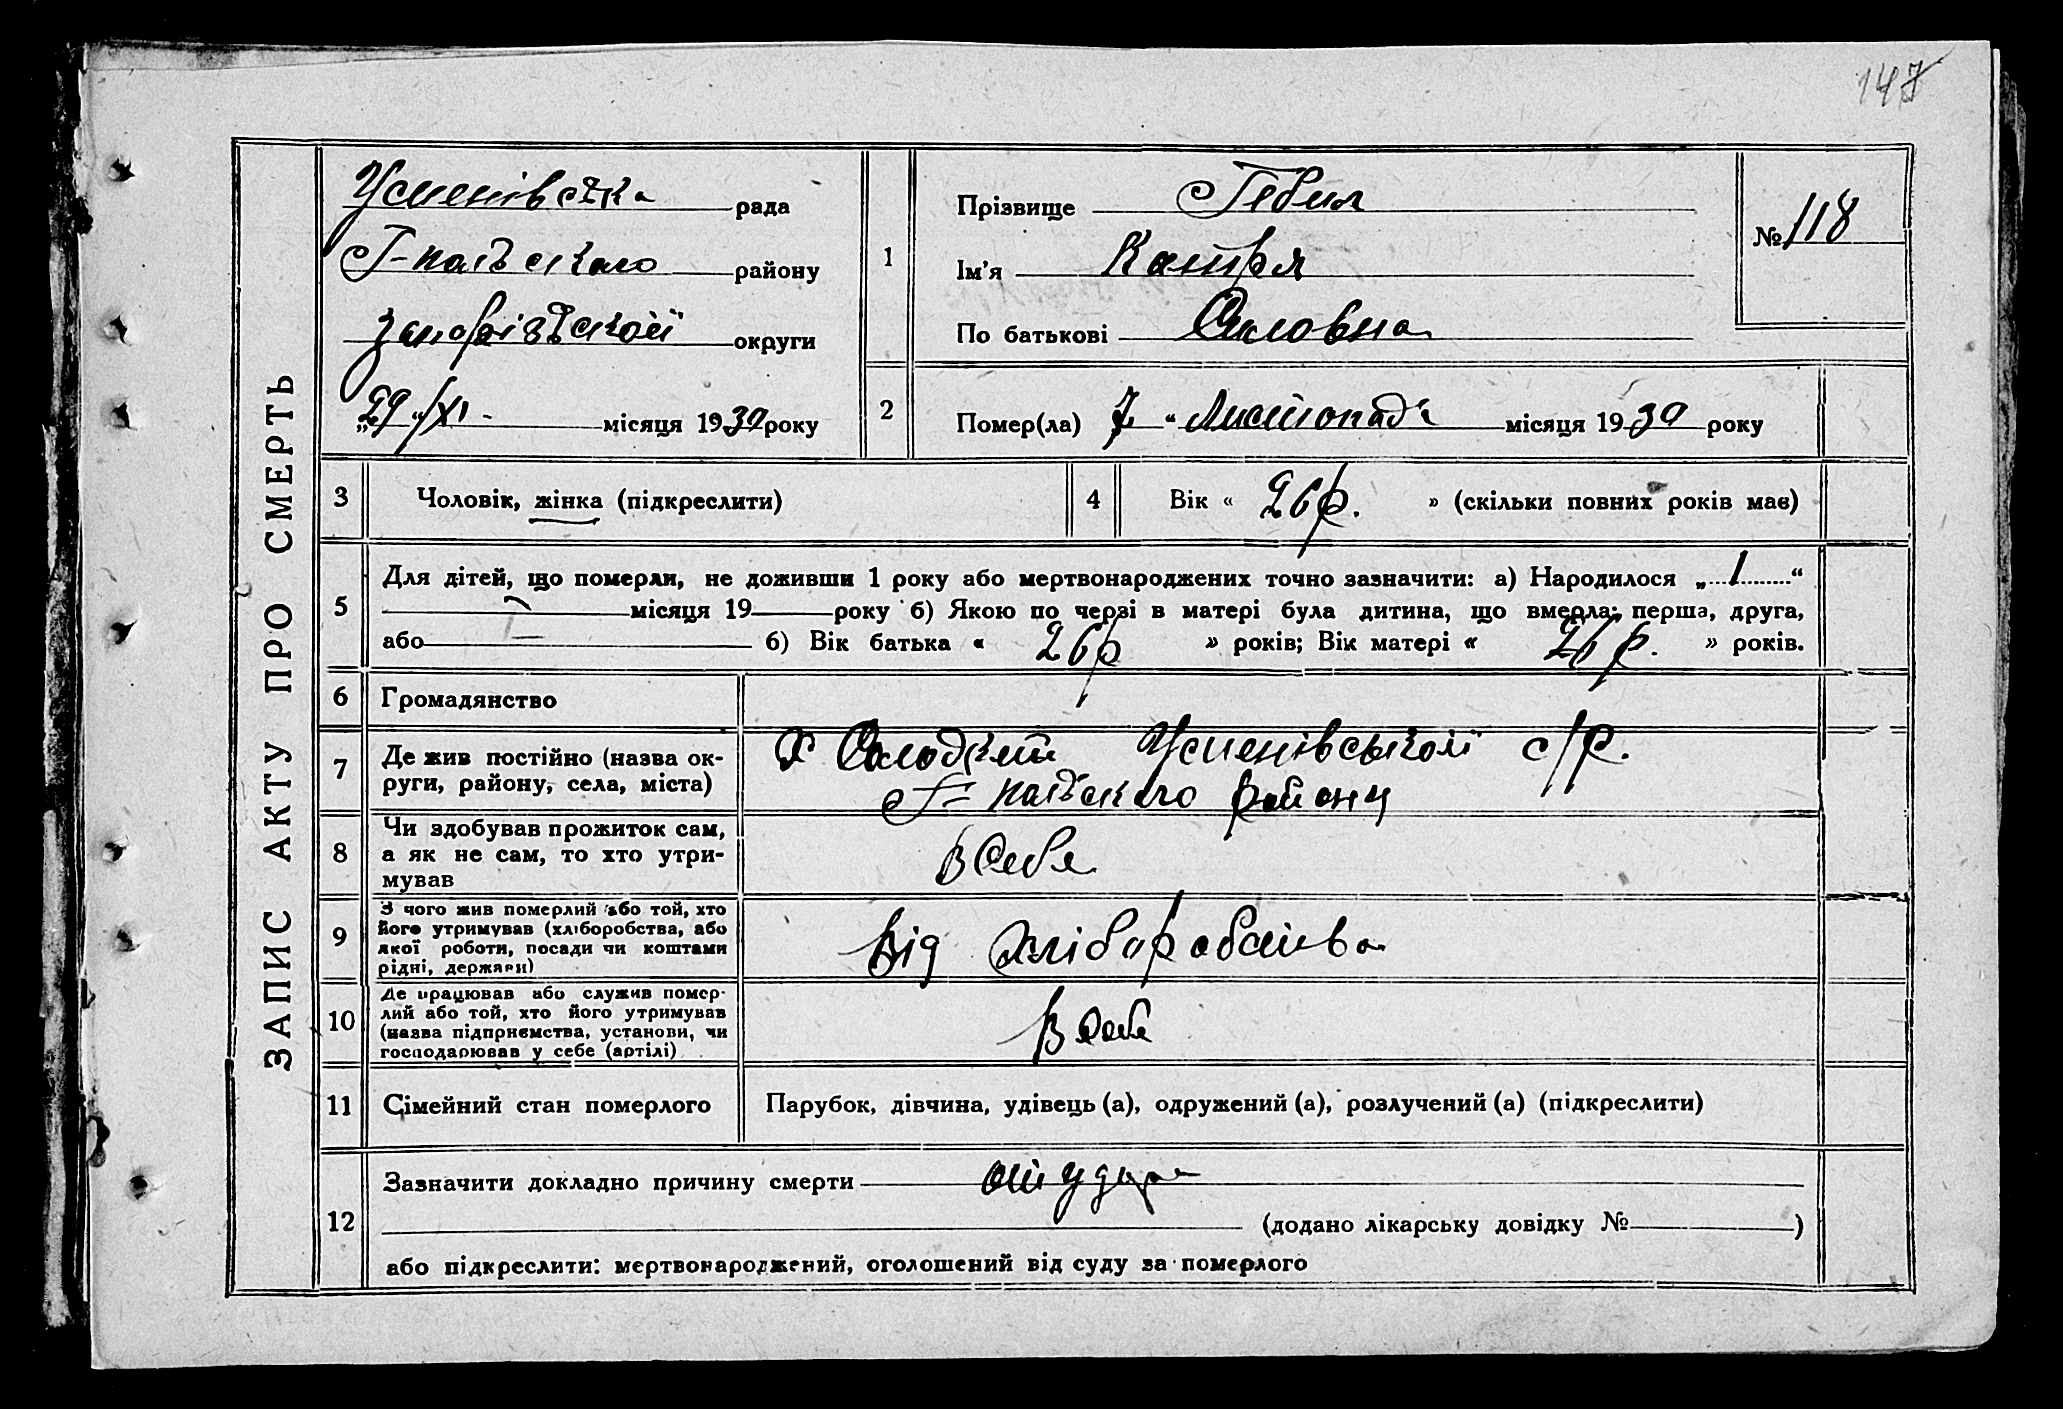 147
ЗАПИС АКТУ ПРО СМЕРТЬ
Успенівська рада
Г-пільського району
Запорізької округи
„29“/XI- місяця 1930 року
1
Прізвище
Ім’я Катря
По батькові
№ 118
2
Помер(ла) 7 “ Листопада місяця 1930 року
3 Чоловік, жінка (підкреслити)
4 Вік « 26 р. » (скільки повних років має)
5 Для дітей, що померли, не доживши 1 року або мертвонароджених точно зазначити: а) Народилося „ 1 “
місяця 19 року б) Якою по черзі в матері була дитина, що вмерла: перша, друга,
або б) Вік батька « 26 р » років; Вік матері « 26 р. » років.
6 Громадянство
7 Де жив постійно (назва ок-
руги, району, села, міста)
Х Солодкий Успенівської с/р.
Г-пільского району
8 Чи здобував прожиток сам,
а як не сам, то хто утри-
мував
В Себе
9 З чого жив померлий або той, хто
його утримував (хліборобства, або
якої роботи, посади чи коштами
рідні, держави)
Від хліборобства
10 Де працював або служив помер-
лий або той, хто його утримував
(назва підприємства, установи, чи
господарював у себе (артілі)
В себе
11 Сімейний стан померлого
Парубок, дівчина, удівець (а), одружений (а), розлучений (а) (підкреслити)
12 Зазначити докладно причину смерти от удара
(додано лікарську довідку № )
або підкреслити: мертвонароджений, оголошений від суду за померлого